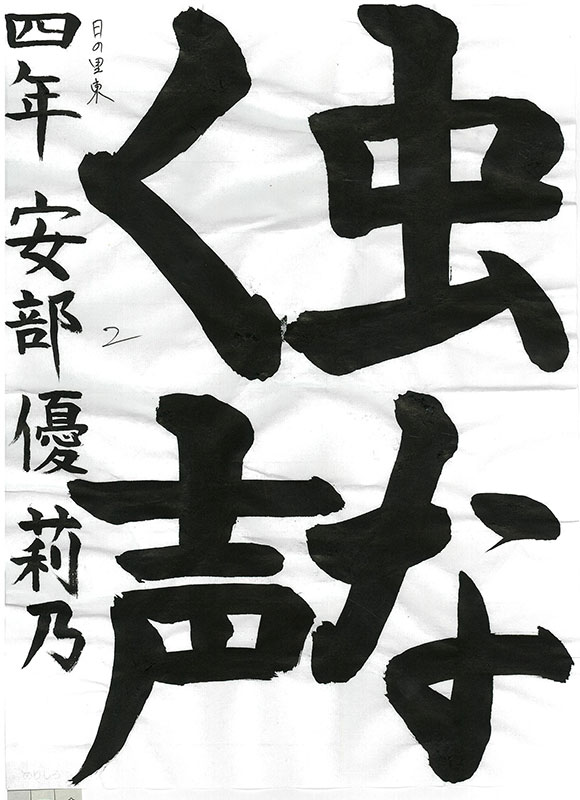 虫な
く声
日の里東
四年 安部優莉乃
2